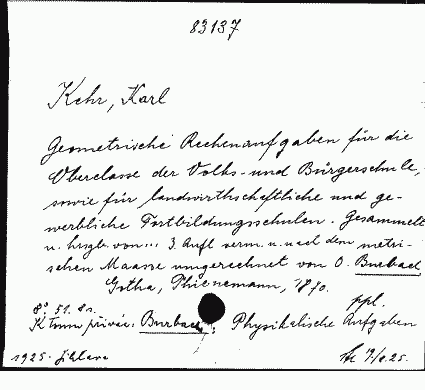 83137
Kehr, Karl
Geometrische Rechenaufgaben für die
Oberclasse der Volks- und Bürgerschule,
sowie für landwirthschaftliche und ge-
werbliche Fortbildungsschulen. Gesammelt
u. hrsgb. von... 3. Aufl. verm. u. nach dem metri-
schen Maasse umgerechnet von O. Burbach
Gotha, Thienemann, 1870.
8° 51. 8 s. ppl.
Burbach, : Physikalische Aufgaben
1925. Jihlava